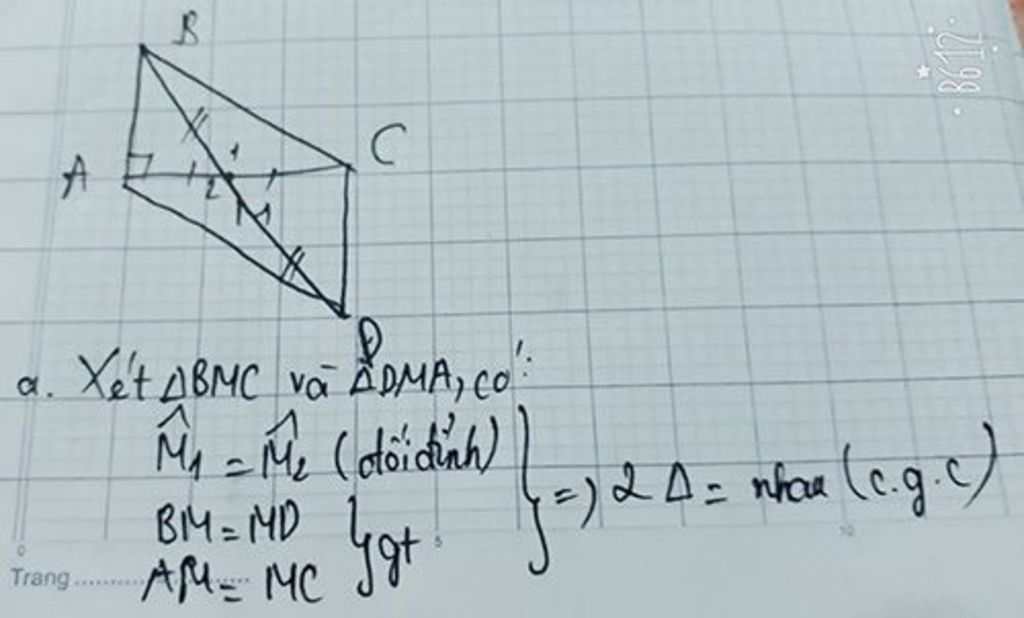 B612
B
A
C
1
2
M
D
a. Xét ΔBMC và ΔDMA, có:
M̂1 = M̂2 (đối đỉnh)
BM = MD
AM = MC
} gt
} => 2 Δ = nhau (c.g.c)
0
5
10
Trang